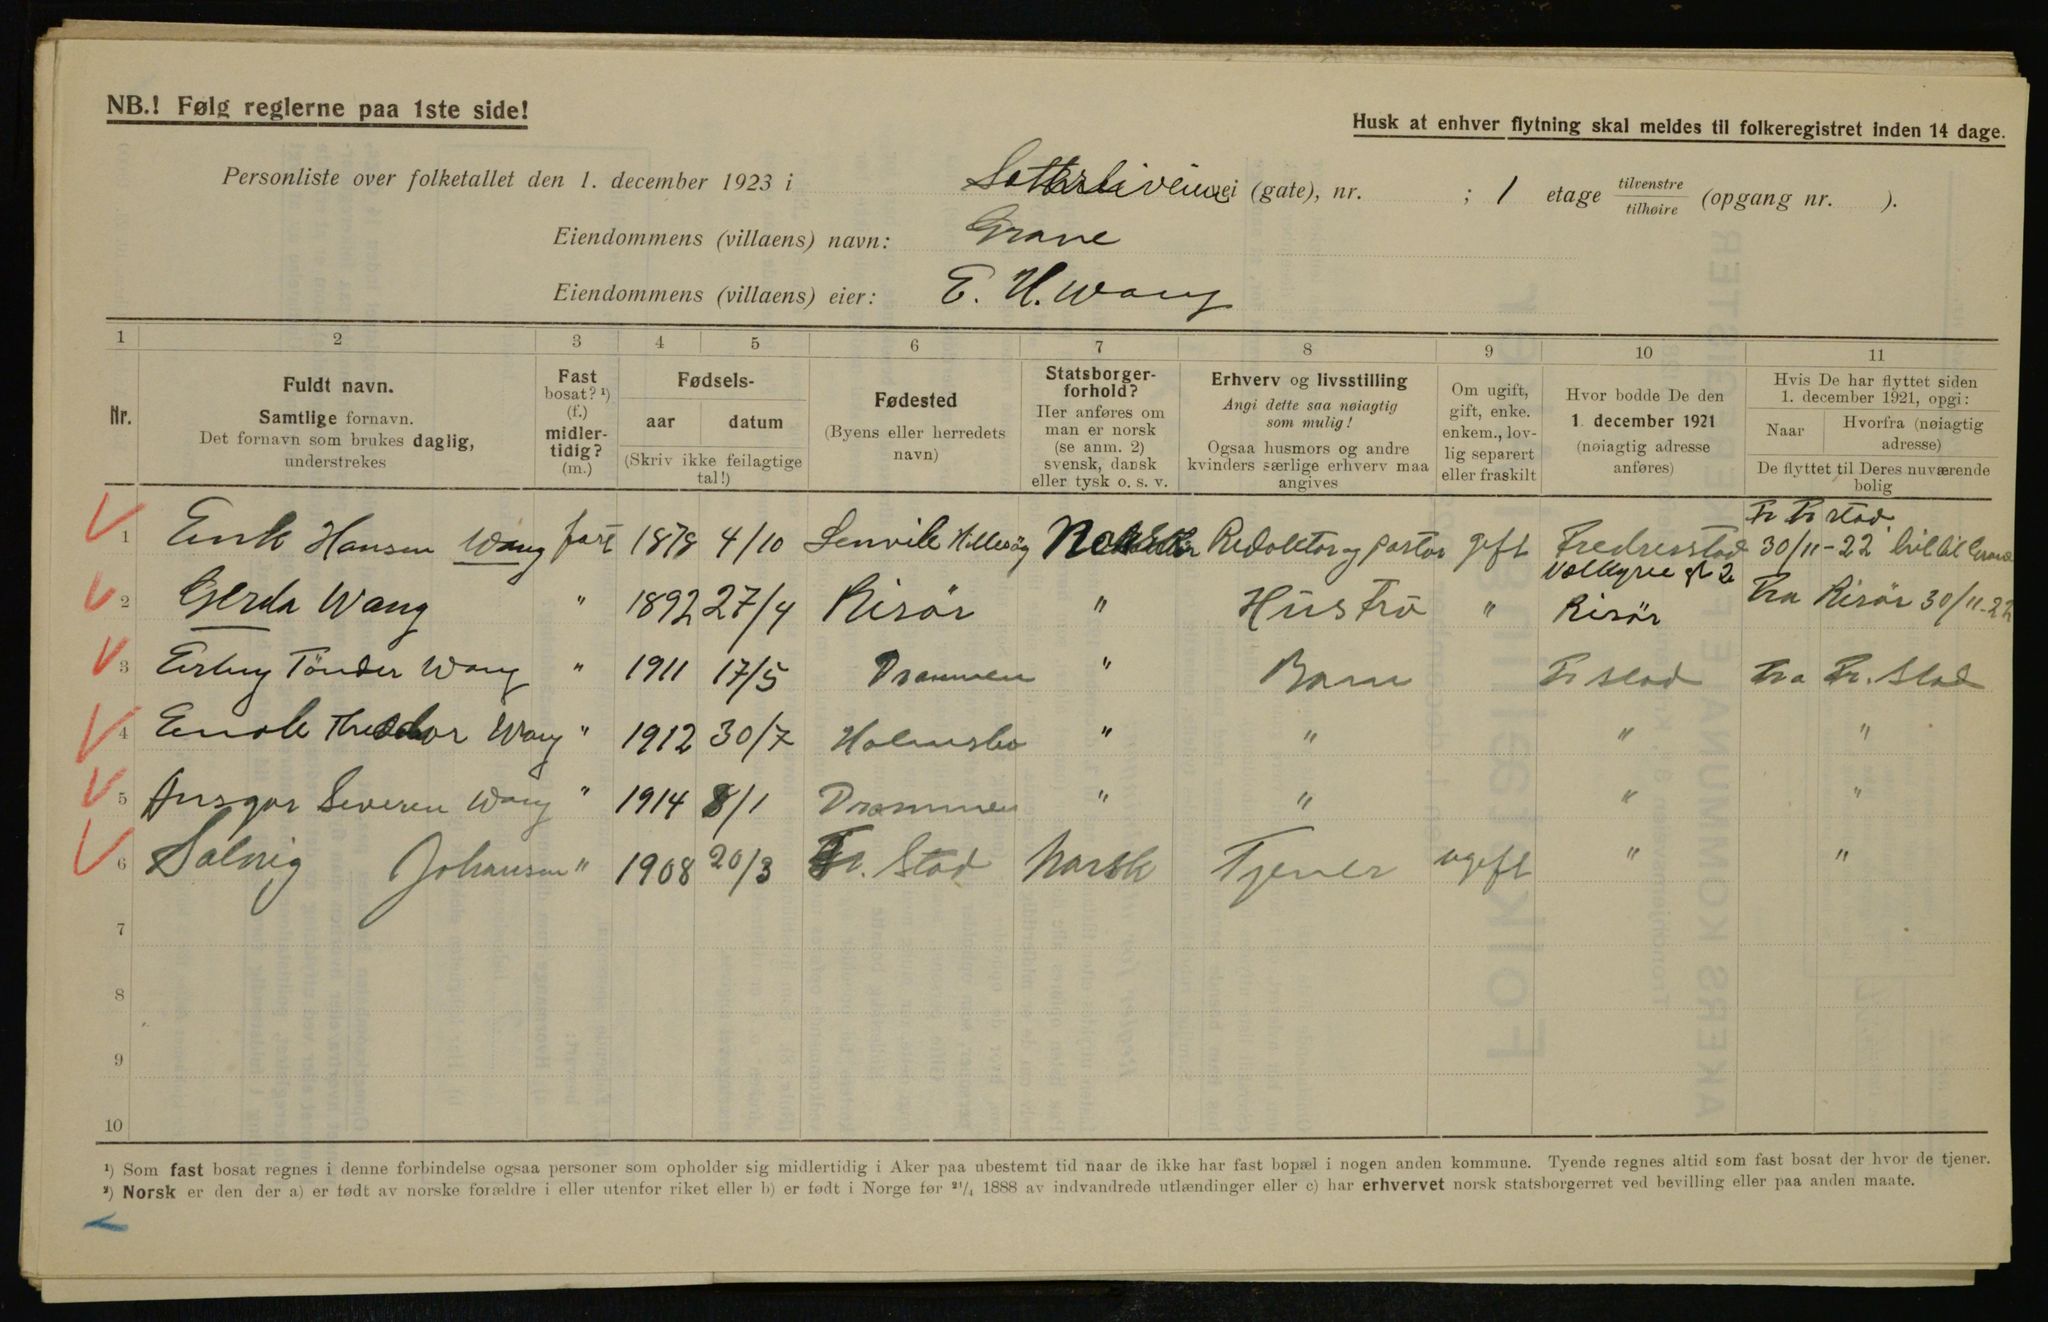 NB.! Følg reglerne paa 1ste side!
Husk at enhver flytning skal meldes til folkeregistret inden 14 dage.
Personliste over folketallet den 1. december 1923 i vei (gate), nr. ; 1 etage tilvenstre tilhøire (opgang nr. ).
Eiendommens (villaens) navn: Grane
Eiendommens (villaens) eier: E. H. Wang
1 2 3 4 5 6 7 8 9 10 11
Nr.
Fuldt navn.
Samtlige fornavn.
Det fornavn som brukes daglig,
understrekes
Fast
bosat? ¹)
(f.)
midler-
tidig?
(m.)
Fødsels-
aar datum
(Skriv ikke feilagtige
tal!)
Fødested
(Byens eller herredets
navn)
Statsborger-
forhold?
Her anføres om
man er norsk
(se anm. 2)
svensk, dansk
eller tysk o. s. v.
Erhverv og livsstilling
Angi dette saa nøiagtig
som mulig!
Ogsaa husmors og andre
kvinders særlige erhverv maa
angives
Om ugift,
gift, enke.
enkem., lov-
lig separert
eller fraskilt
Hvor bodde De den
1. december 1921
(nøiagtig adresse
anføres)
Hvis De har flyttet siden
1. december 1921, opgi:
Naar Hvorfra (nøiagtig
adresse)
De flyttet til Deres nuværende
bolig
1 Hansen Wang fast 1878 4/10 Lenvik Hillesøy Redaktør og pastor gift Fredrikstad Fr Fr stad 30/11-22
2 Gerda Wang " 1892 27/4 Risør " Hustru " Risør Fra Risør 30/11-22
3 Tönder Wang " 1911 17/5 Drammen " Barn Fr stad Fra Fr. stad
4 Theodor Wang " 1912 30/7 Holmsbo " " " "
5 Ansgar Severen Wang " 1914 8/1 Drammen " " " "
6 Solveig Johansen " 1908 20/3 Fr. Stad Norsk Tjener ugift " "
7
8
9
10
¹) Som fast bosat regnes i denne forbindelse ogsaa personer som opholder sig midlertidig i Aker paa ubestemt tid naar de ikke har fast bopæl i nogen anden kommune. Tyende regnes altid som fast bosat der hvor de tjener.
²) Norsk er den der a) er født av norske forældre i eller utenfor riket eller b) er født i Norge før ²¹/₄ 1888 av indvandrede utlændinger eller c) har erhvervet norsk statsborgerret ved bevilling eller paa anden maate.